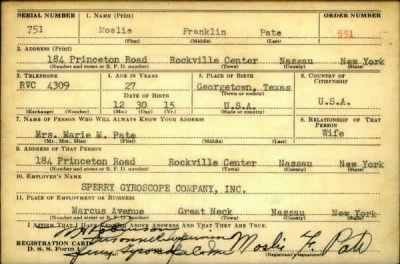 SERIAL NUMBER 1. NAME (Print) ORDER NUMBER
751 Moslie Franklin Pate 531
(First) (Middle) (Last)
2. ADDRESS (Print)
184 Princeton Road Rockville Center Nassau New York
(Number and street or R. F. D. number) (Town) (County) (State)
3. TELEPHONE 4. AGE IN YEARS 5. PLACE OF BIRTH 6. COUNTRY OF CITIZENSHIP
RVC 4309 27 Georgetown, Texas
DATE OF BIRTH (Town or county)
12 30 15 U.S.A. U.S.A.
(Exchange) (Number) (Mo.) (Day) (Yr.) (State or country)
7. NAME OF PERSON WHO WILL ALWAYS KNOW YOUR ADDRESS 8. RELATIONSHIP OF THAT PERSON
Mrs. Marie M. Pate Wife
(Mr., Mrs., Miss) (First) (Middle) (Last)
9. ADDRESS OF THAT PERSON
184 Princeton Road Rockville Center Nassau New York
(Number and street or R. F. D. number) (Town) (County) (State)
10. EMPLOYER'S NAME
SPERRY GYROSCOPE COMPANY, INC.
11. PLACE OF EMPLOYMENT OR BUSINESS
Marcus Avenue Great Neck Nassau New York
(Number and street or R. F. D. number) (Town) (County) (State)
I AFFIRM THAT I HAVE VERIFIED ABOVE ANSWERS AND THAT THEY ARE TRUE.
REGISTRATION CARD
D. S. S. Form 1 Moslie F. Pate
(Registrant's signature)